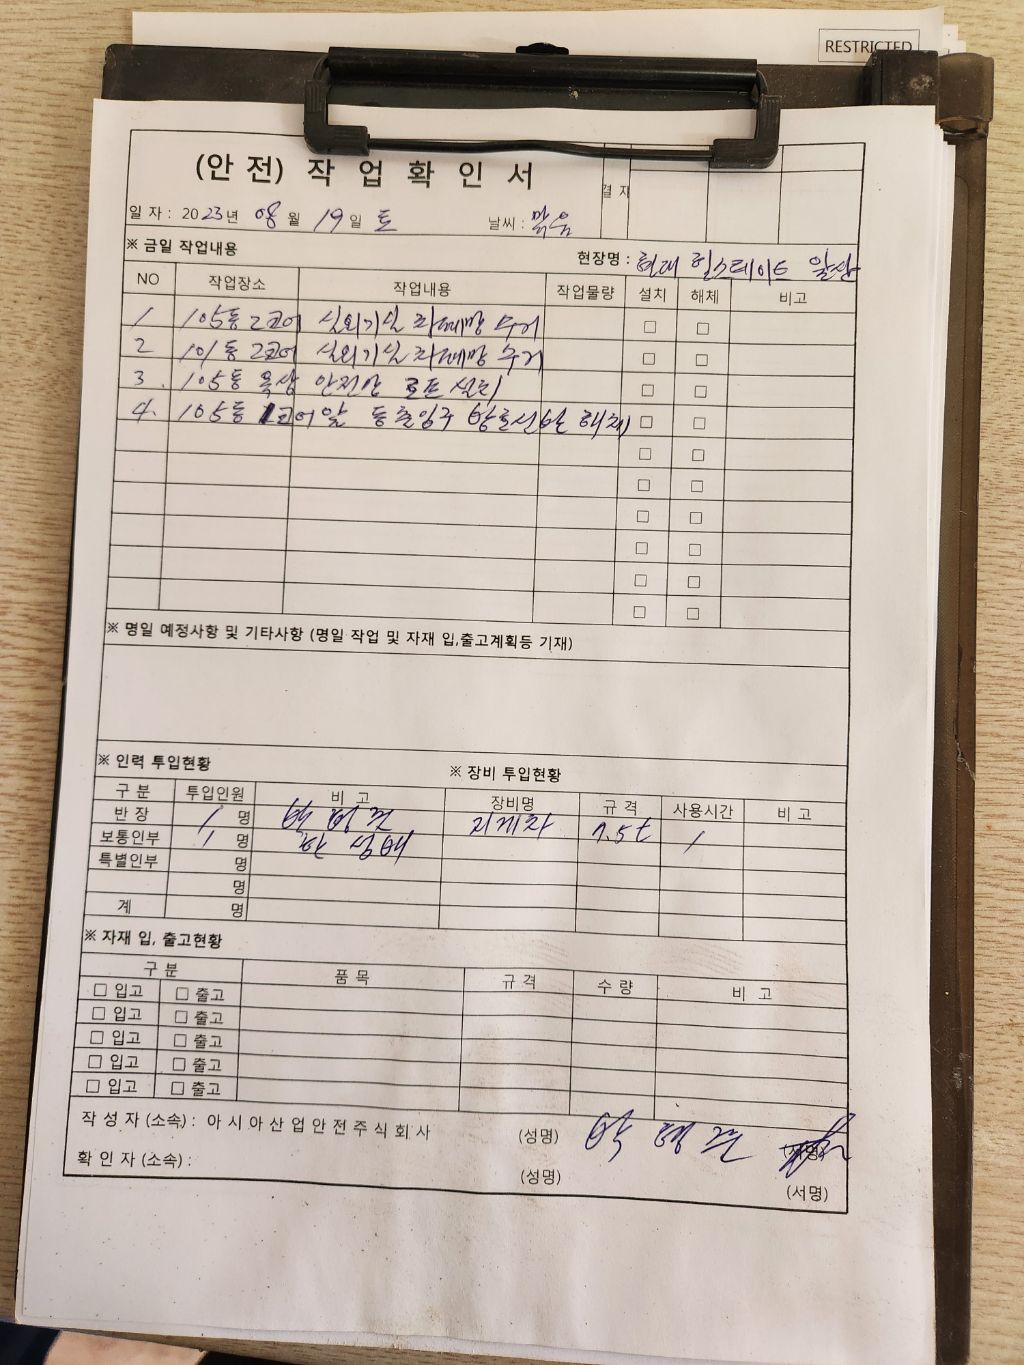 RESTRICTED
(안전) 작 업 확 인 서
결 자
일 자 : 2023년 08월 19일 토 날씨 : 맑음
※ 금일 작업내용 현장명 : 현대 힐스테이트 일산
NO 작업장소 작업내용 작업물량 설치 해체 비고
1 105동 2코어 실외기실 낙하물망 수거 □ □
2 101동 2코어 실외기실 수거 □ □
3. 105동 옥상 안전망 로프 설치 □ □
4. 105동 1코어 앞 동출입구 방호선반 해체 □ □
□ □
□ □
□ □
□ □
□ □
□ □
※ 명일 예정사항 및 기타사항 (명일 작업 및 자재 입,출고계획등 기재)
※ 인력 투입현황 ※ 장비 투입현황
구 분 투입인원 비 고 장비명 규 격 사용시간 비 고
반 장 1 명 박 지게차 7.5t 1
보통인부 1 명 한
특별인부 명
명
계 명
※ 자재 입, 출고현황
구 분 품 목 규 격 수 량 비 고
□ 입고 □ 출고
□ 입고 □ 출고
□ 입고 □ 출고
□ 입고 □ 출고
□ 입고 □ 출고
작 성 자 (소속) : 아시아산업안전주식회사 (성명) 박 (서명)
확 인 자 (소속) : (성명) (서명)